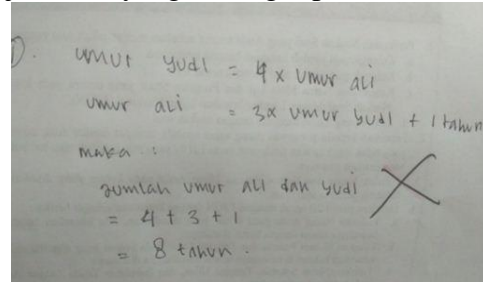 1). umur yudi = 4 x umur ali
umur ali = 3x umur yudi + 1 tahun
maka :
Jumlah umur ali dan yudi
= 4 + 3 + 1
= 8 tahun.